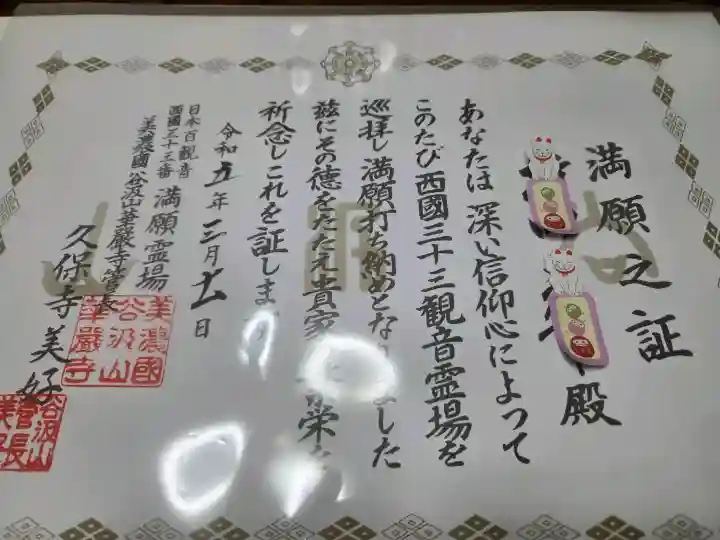 満願之証
殿
あなたは深い信仰心によって
このたび西國三十三観音霊場を
巡拝し満願打ち納めとな ました
茲にその徳をたたえ貴家 栄を
祈念しこれを証しま
令和五年三月 日
日本百観音
西國三十三番
満願霊場
美濃國谷汲山華厳寺管長
久保寺美好
美濃國
谷汲山
華嚴寺
谷汲山
管長